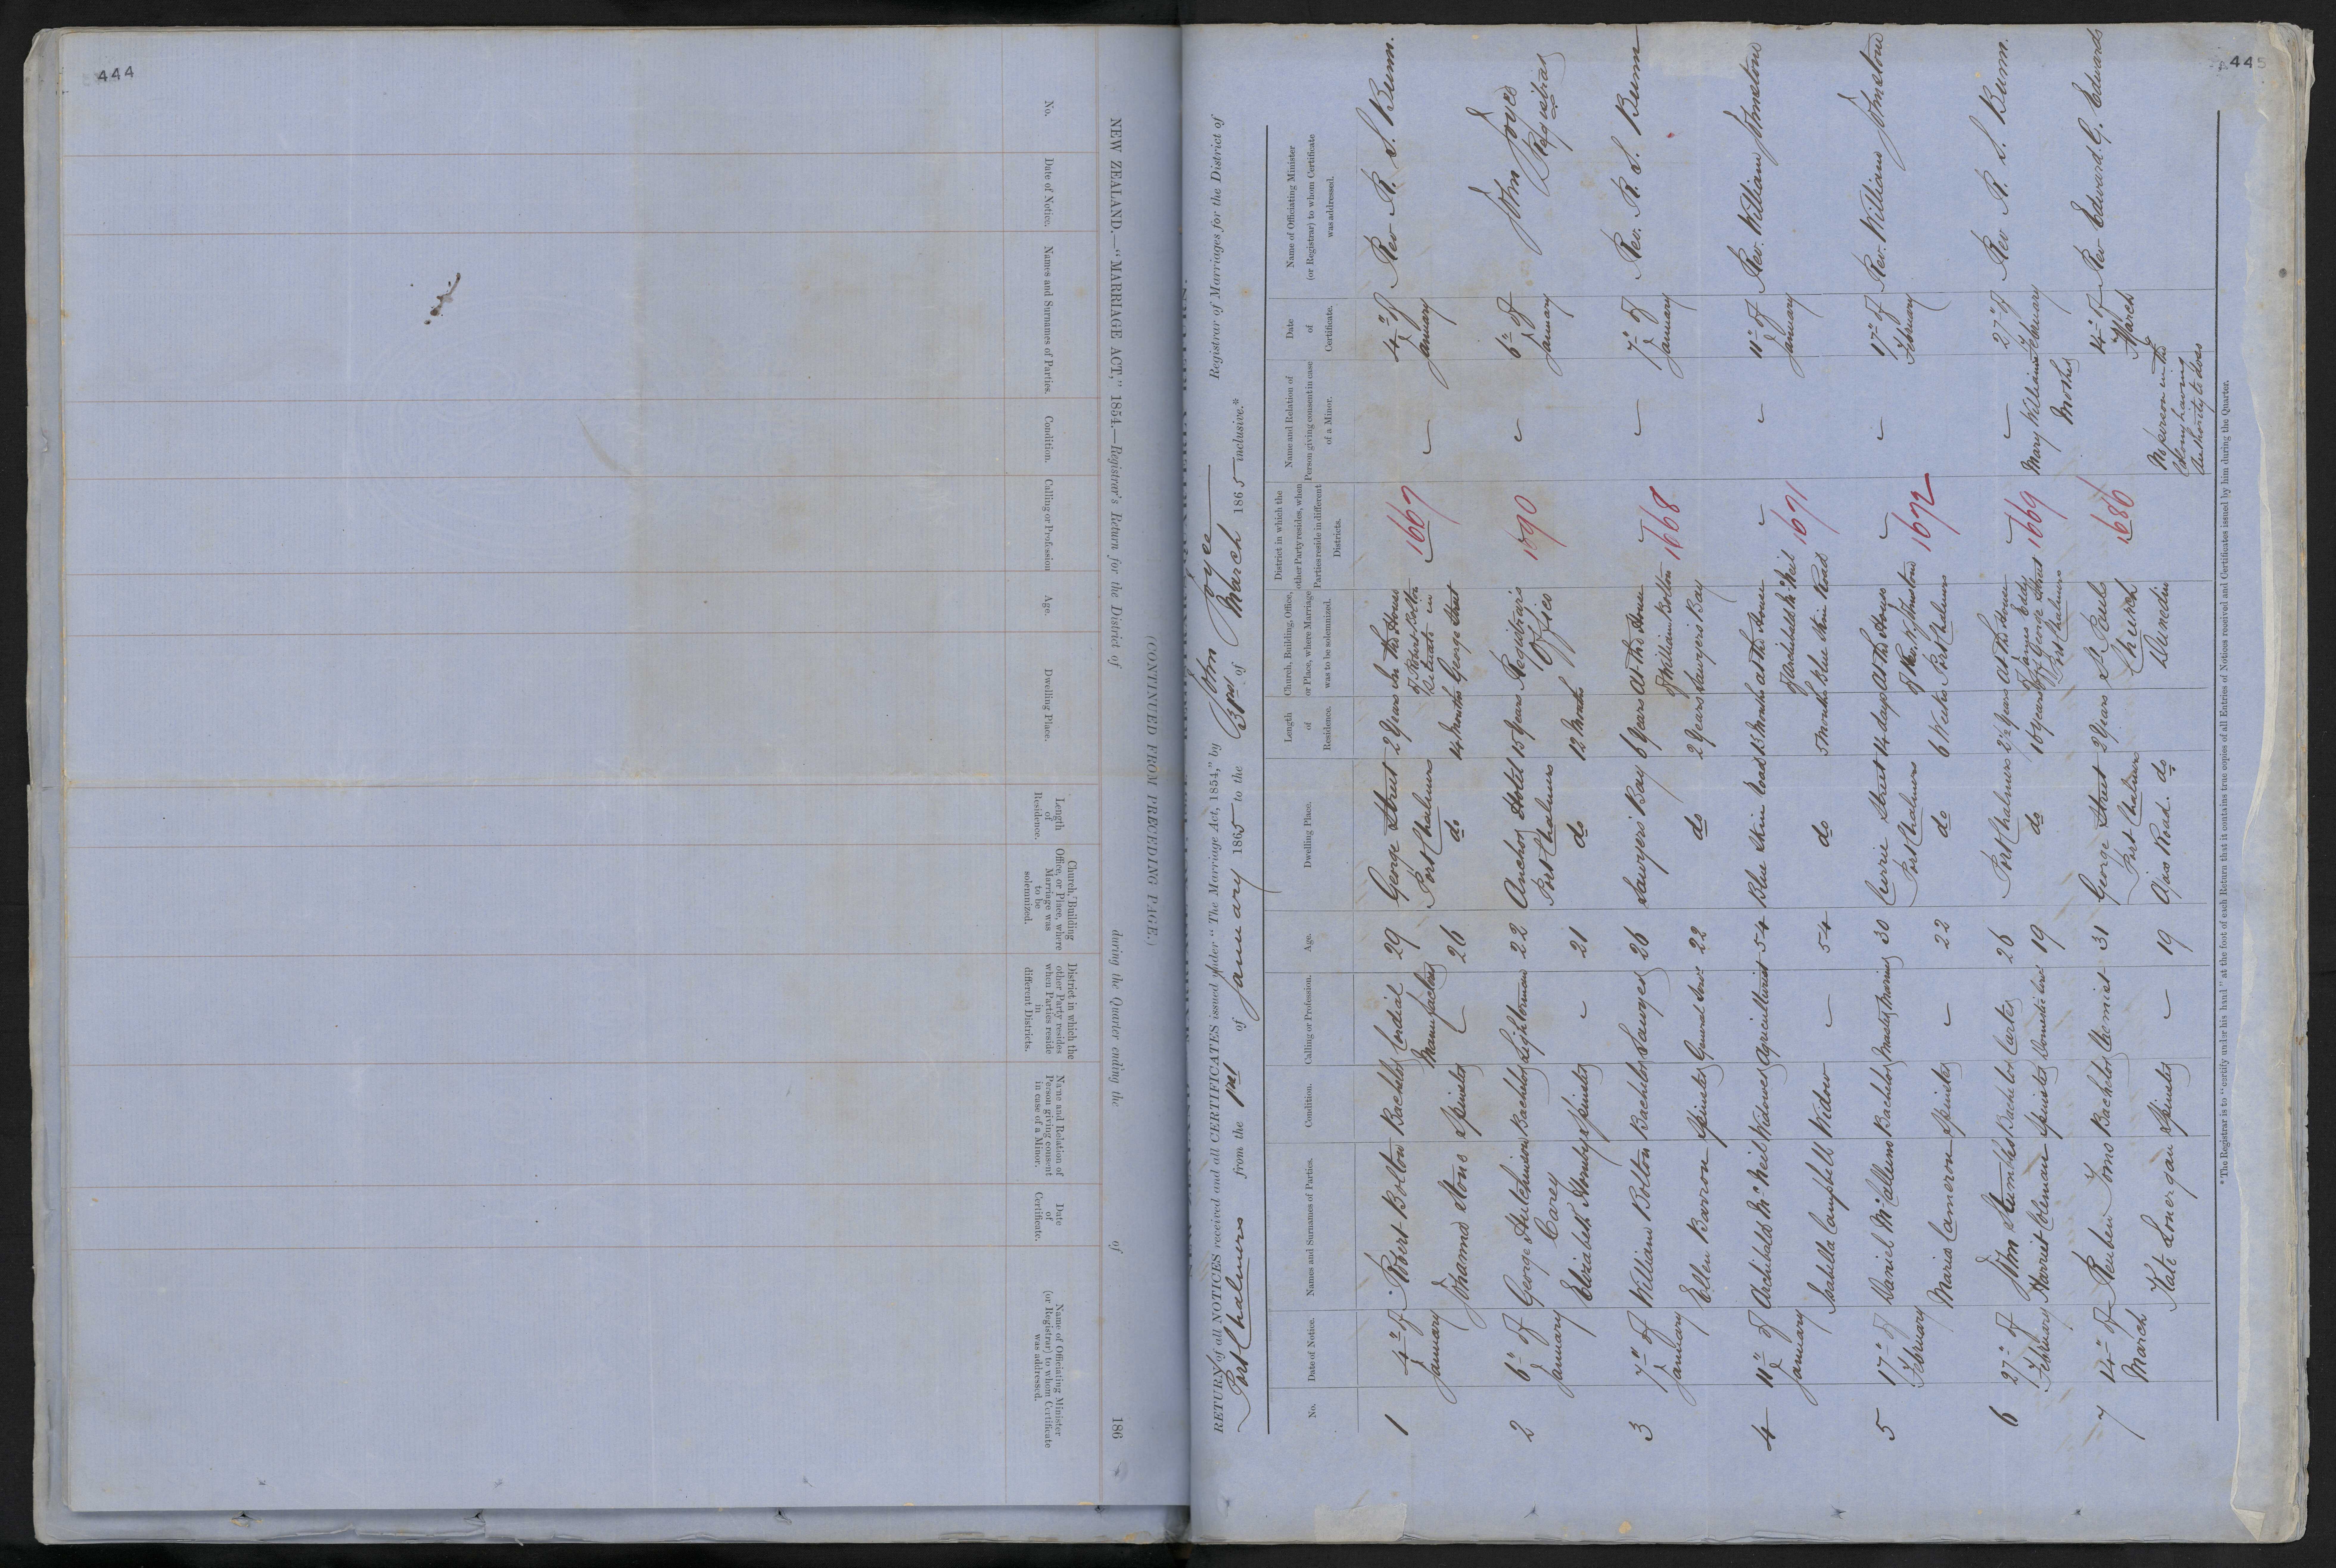 444
NEW ZEALAND.—"MARRIAGE ACT," 1854.—Registrar's Return for the District of during the Quarter ending the of 186
(CONTINUED FROM PRECEDING PAGE.)
No.
Date of Notice.
Names and Surnames of Parties.
Condition.
Calling or Profession
Age.
Dwelling Place.
Length of Residence.
Church, Building Office, or Place, where Marriage was to be solemnized.
District in which the other Party resides when Parties reside in different Districts.
Name and Relation of Person giving consent in case of a Minor.
Date of Certificate.
Name of Officiating Minister (or Registrar) to whom Certificate was addressed.
445
RETURN of all NOTICES received and all CERTIFICATES issued under "The Marriage Act, 1854," by John Joyce Registrar of Marriages for the District of
Port Chalmers from the 1st of January 1865 to the 31st of March 1865 inclusive.*
No.
Date of Notice.
Names and Surnames of Parties.
Condition.
Calling or Profession.
Age.
Dwelling Place.
Length of Residence.
Church, Building, Office, or Place, where Marriage was to be solemnized.
District in which the other Party resides, when Parties reside in different Districts.
Name and Relation of Person giving consent in case of a Minor.
Date of Certificate.
Name of Officiating Minister (or Registrar) to whom Certificate was addressed.
1 4th of January Robert Bolton Bachelor Cordial Manufacturer 29 George Street Port Chalmers 2 Years In the House of Robert Bolton situate in George Street 1667 4th of January Rev R. S. Bunn.
Johanna Stone Spinster 26 do 14 Months
2 6th of January George Hutchinson Carey Bachelor Lighterman 22 Anchor Hotel Port Chalmers 15 Years Registrar's Office 1690 6th of January John Joyce Registrar
Elizabeth Spinster 21 do 12 Months
3 7th of January William Bolton Bachelor Sawyer 26 Sawyers Bay 6 Years At the House of William Bolton Sawyers Bay 1668 7th of January Rev. R. S. Bunn
Ellen Barron Spinster General Servt 22 do 2 Years
4 11th of January Archibald McNeil Widower Agriculturist 54 Blue Skin Road 13 Months At the House of Archibald McNeil Blue Skin Road 1671 11th of January Rev. William Johnstone
Isabella Campbell Widow 54 do 5 Months
5 17th of February Daniel McCallum Bachelor Master Mariner 30 Currie Street Port Chalmers 14 days At the House of Rev. W. Johnstone Port Chalmers 1672 17th of February Rev. William Johnstone
Maria Cameron Spinster 22 do 6 Weeks
6 27th of February John Stumbles Bachelor Carter 26 Port Chalmers 2½ Years At the House of James Eddy George Street Port Chalmers 1669 27th of February Rev R. S. Bunn.
Harriet Spinster Domestic Servt 19 do 16 Years Mary Williams Mother
7 14th of March Reuben Bachelor Chemist 31 George Street Port Chalmers 2 Years St Pauls Church Dunedin 1686 14th of March Rev Edward. G. Edwards
Kate Lonergan Spinster 19 Road. do No person in the Colony having Authority to do so
*The Registrar is to "certify under his hand" at the foot of each Return that it contains true copies of all Entries of Notices received and Certificates issued by him during the Quarter.